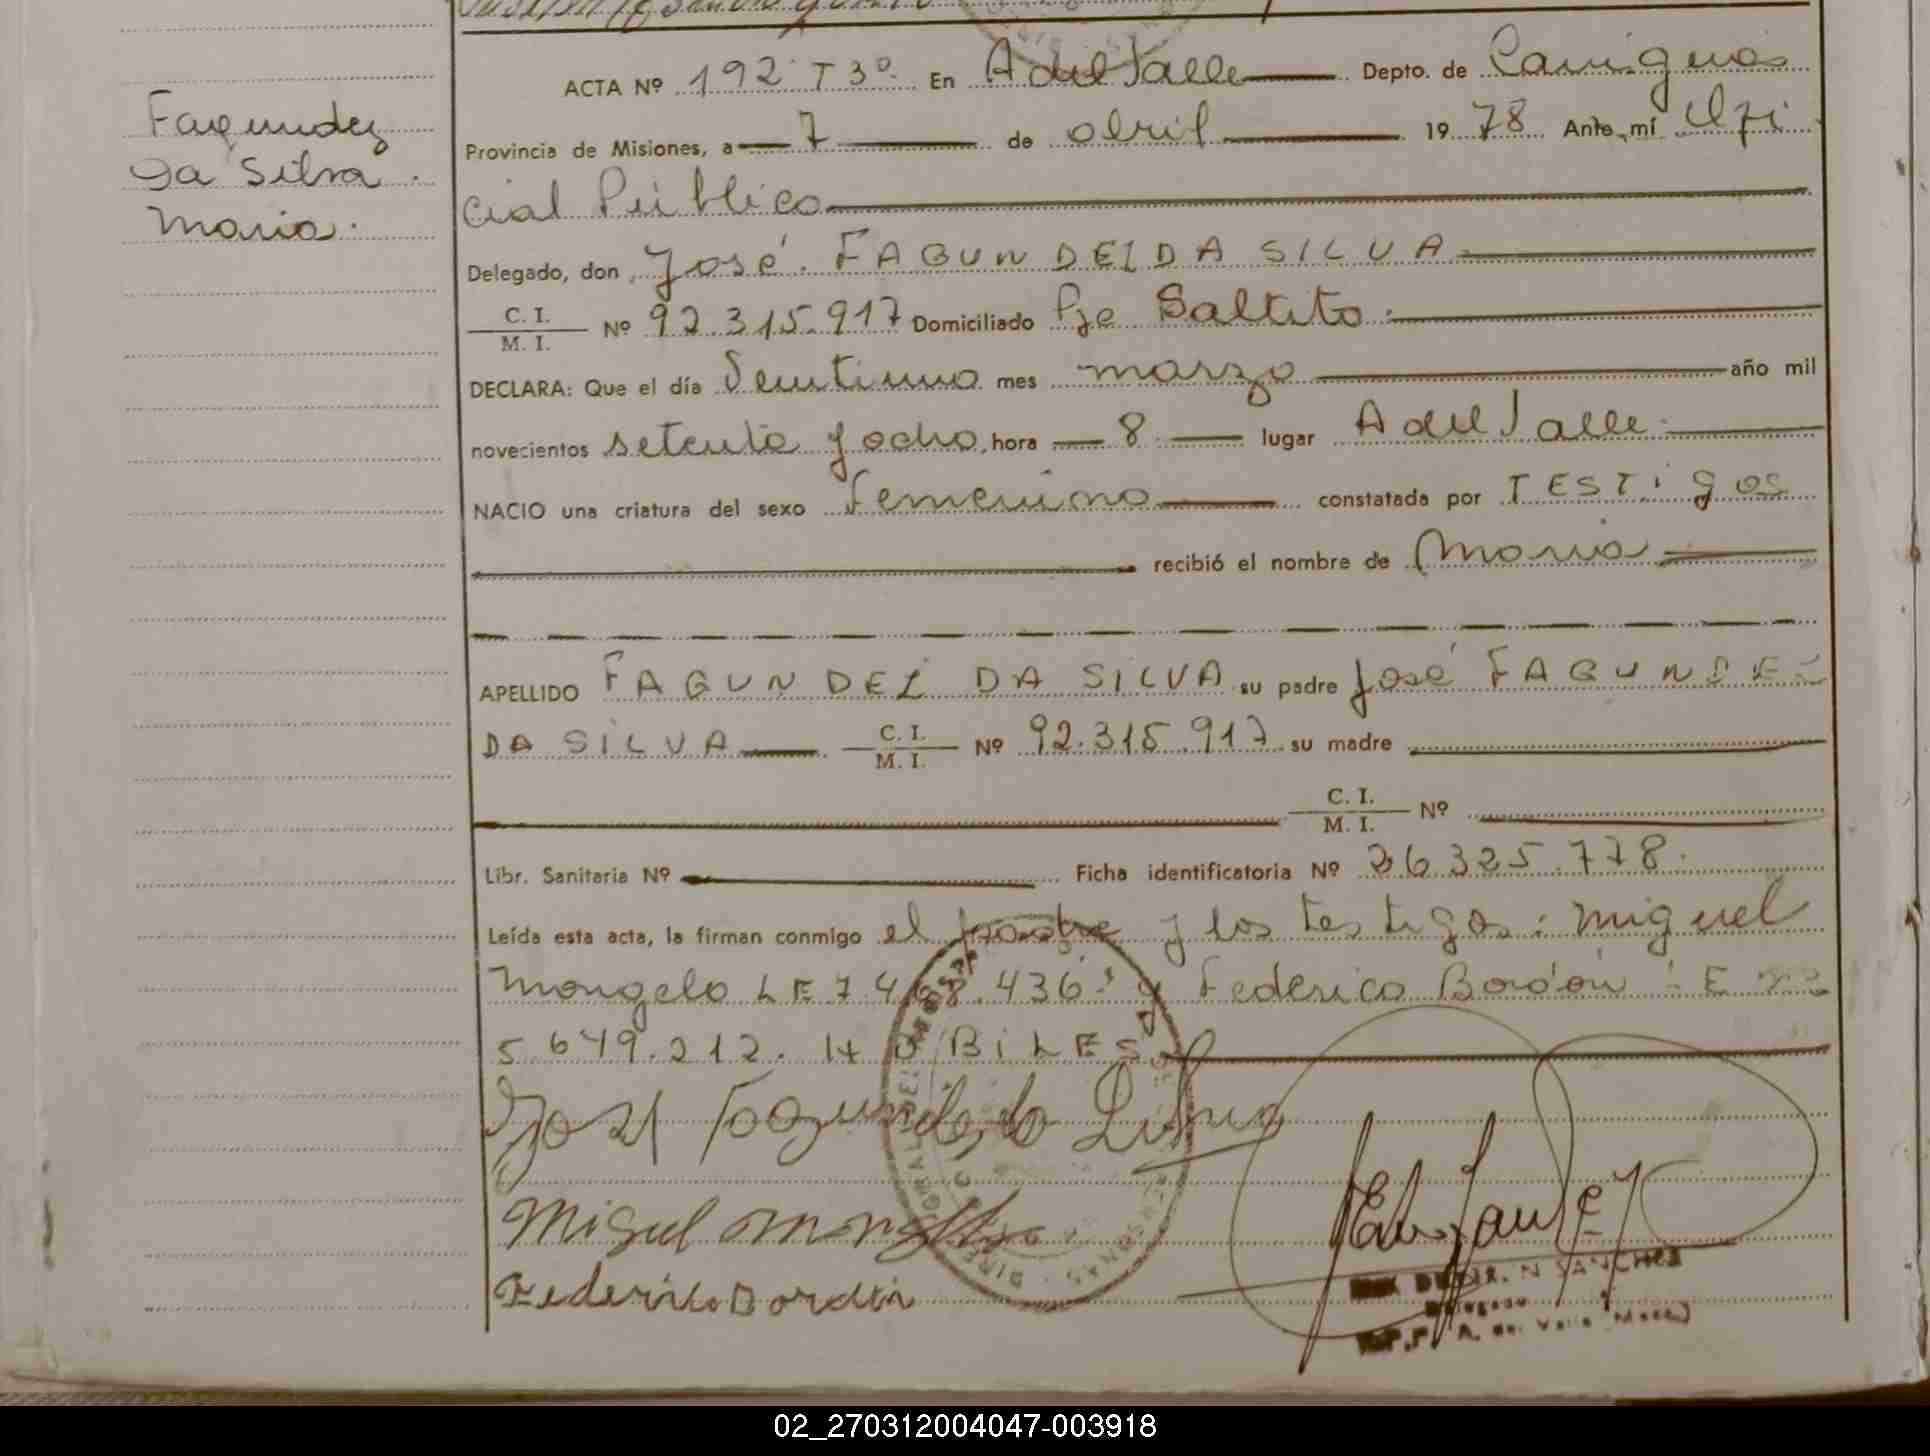 Fagundez
Da Silva
Maria.
ACTA Nº 192 T 3º. En A del Valle Depto. de Cainguás
Provincia de Misiones, a 7 de abril 1978 Ante mí Ofi
cial Público
Delegado, don José FAGUNDEZ DA SILVA
C. I.
M. I. Nº 92.315.917 Domiciliado Pje Saltito.
DECLARA: Que el día Veintiuno mes marzo año mil
novecientos setenta y ocho, hora 8 lugar A del Valle
NACIO una criatura del sexo femenino constatada por TESTigos
recibió el nombre de Maria
APELLIDO FAGUNDEZ DA SILVA su padre José FAGUNDEZ
DA SILVA C. I.
M. I. Nº 92.315.917 su madre
C. I.
M. I. Nº
Libr. Sanitaria Nº Ficha identificatoria Nº 26325.778.
Leída esta acta, la firman conmigo el padre y los testigos: Miguel
Mongelo LE 7.468.436 y Federico Bordón
5.649.212. HABILES
José Fagundez da Silva
Miguel Mongelo
Federico Bordon
SANCHEZ
Delegado
A. del Valle
02_270312004047-003918